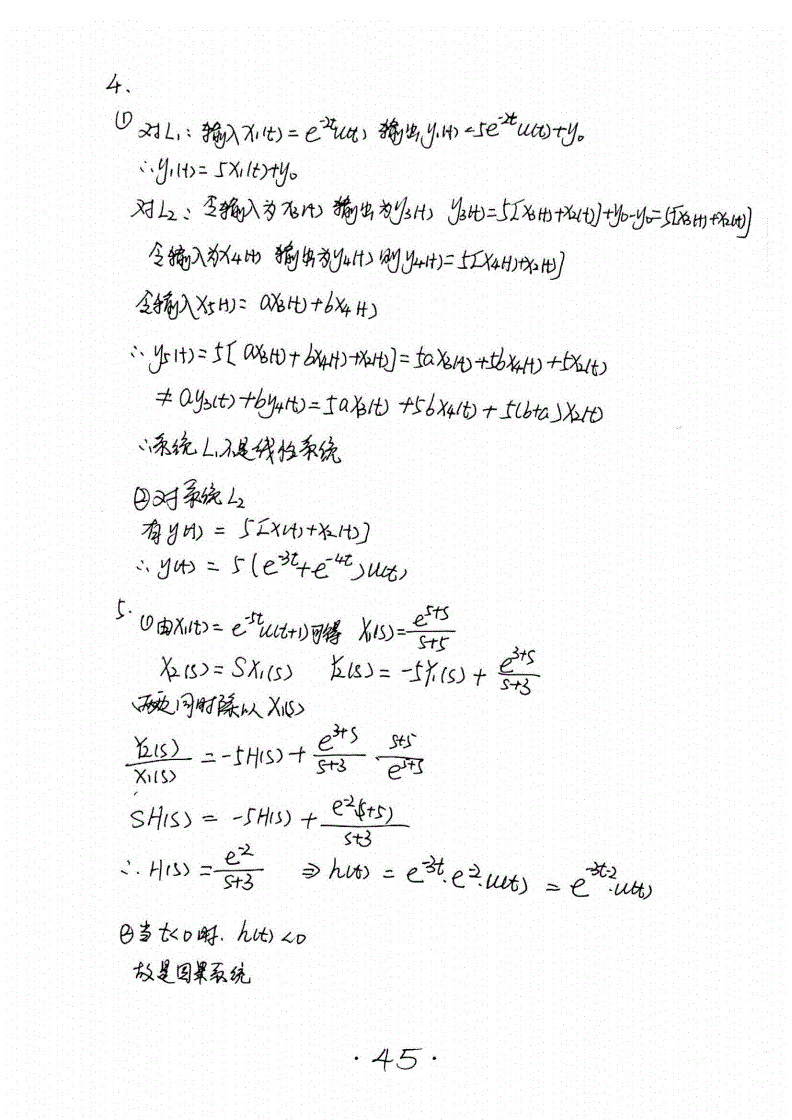 4.
① 对L₁: 输入x₁(t)=e^{-2t}u(t), 输出y₁(t)=5e^{-2t}u(t)+y₀
∴y₁(t)=5x₁(t)+y₀
对L₂: 令输入为x₃(t) 输出为y₃(t) y₃(t)=5[x₃(t)+x₂(t)]+y₀-y₀=5[x₃(t)+x₂(t)]
令输入为x₄(t) 输出为y₄(t) 则y₄(t)=5[x₄(t)+x₂(t)]
令输入x₅(t)=ax₃(t)+bx₄(t)
∴y₅(t)=5[ax₃(t)+bx₄(t)+x₂(t)]=5ax₃(t)+5bx₄(t)+5x₂(t)
≠ay₃(t)+by₄(t)=5ax₃(t)+5bx₄(t)+5(b+a)x₂(t)
∴系统L₁不是线性系统
②对系统L₂
有y(t)=5[x(t)+x₂(t)]
∴y(t)=5(e^{-3t}+e^{-4t})u(t)
5. ①由x₁(t)=e^{-5t}u(t+1)可得 X₁(s)=\frac{e^{5+s}}{s+5}
X₂(s)=SX₁(s) Y₂(s)=-5Y₁(s)+\frac{e^{3+s}}{s+3}
两边同时除以X₁(s)
\frac{Y₂(s)}{X₁(s)}=-5H(s)+\frac{e^{3+s}}{s+3}·\frac{s+5}{e^{s+5}}
SH(s)=-5H(s)+\frac{e^{-2}(s+5)}{s+3}
∴H(s)=\frac{e^{-2}}{s+3} ⇒h(t)=e^{-3t}·e^{-2}·u(t)=e^{-3t-2}·u(t)
②当t<0时. h(t)<0
故是因果系统
·45·